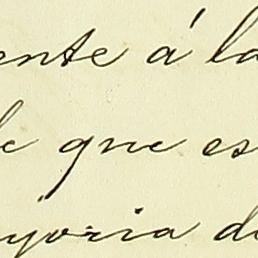 ente á la
de que es
yoria de